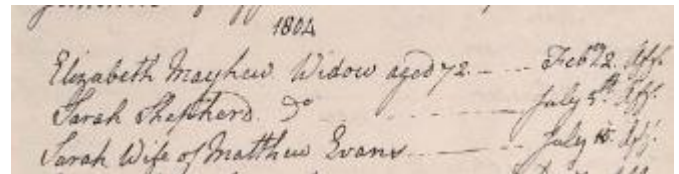 1804
Elizabeth Mayhew Widow aged 72. - - - Feb 12.
Sarah Shepherd. Do - - - - - - July 5th
Sarah Wife of Matthew Evans - - - - - July